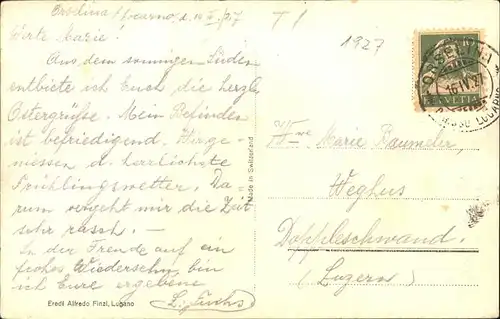 Orselina / Locarno, d. 14 IV. 27
Werte Marie!
Aus dem sonnigen Süden
entbiete ich Euch die herzl.
Ostergrüsse. Mein Befinden
ist befriedigend. Wir ge-
niessen d. herrlichste
Frühlingswetter. Da-
rum vergeht mir die Zeit
sehr rasch. -
In der Freude auf ein
frohes Wiedersehn, bin
ich Eure ergebene
L. Fuchs
Eredi Alfredo Finzi, Lugano
Made in Switzerland
T 1
1927
ORSELINA
16.IV.27
LOCARNO
HELVETIA
Marie
Weghus
Doppleschwand.
(Luzern)